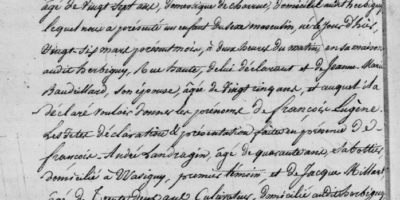 âgé de vingt sept ans, domestique de charrue, domicilié audit herbigny
lequel nous a présenté un enfant du sexe masculin, né le jour d'hier,
vingt six mars présent mois, à deux heures du matin, en sa maison
audit herbigny, Rue haute, de lui déclarant et de Jeanne Marie
Baudillard, son épouse, âgée de vingt cinq ans, et auquel il a
déclaré vouloir donner les prénoms de françois Eugène.
Lesdites déclaration et présentation faites en présence de
françois André Landragin, âgé de quarante ans, Sabottier
domicilié à Wasigny, premier témoin et de Jacque Millart
âgé de trente deux ans Cultivateur, domicilié audit herbigny